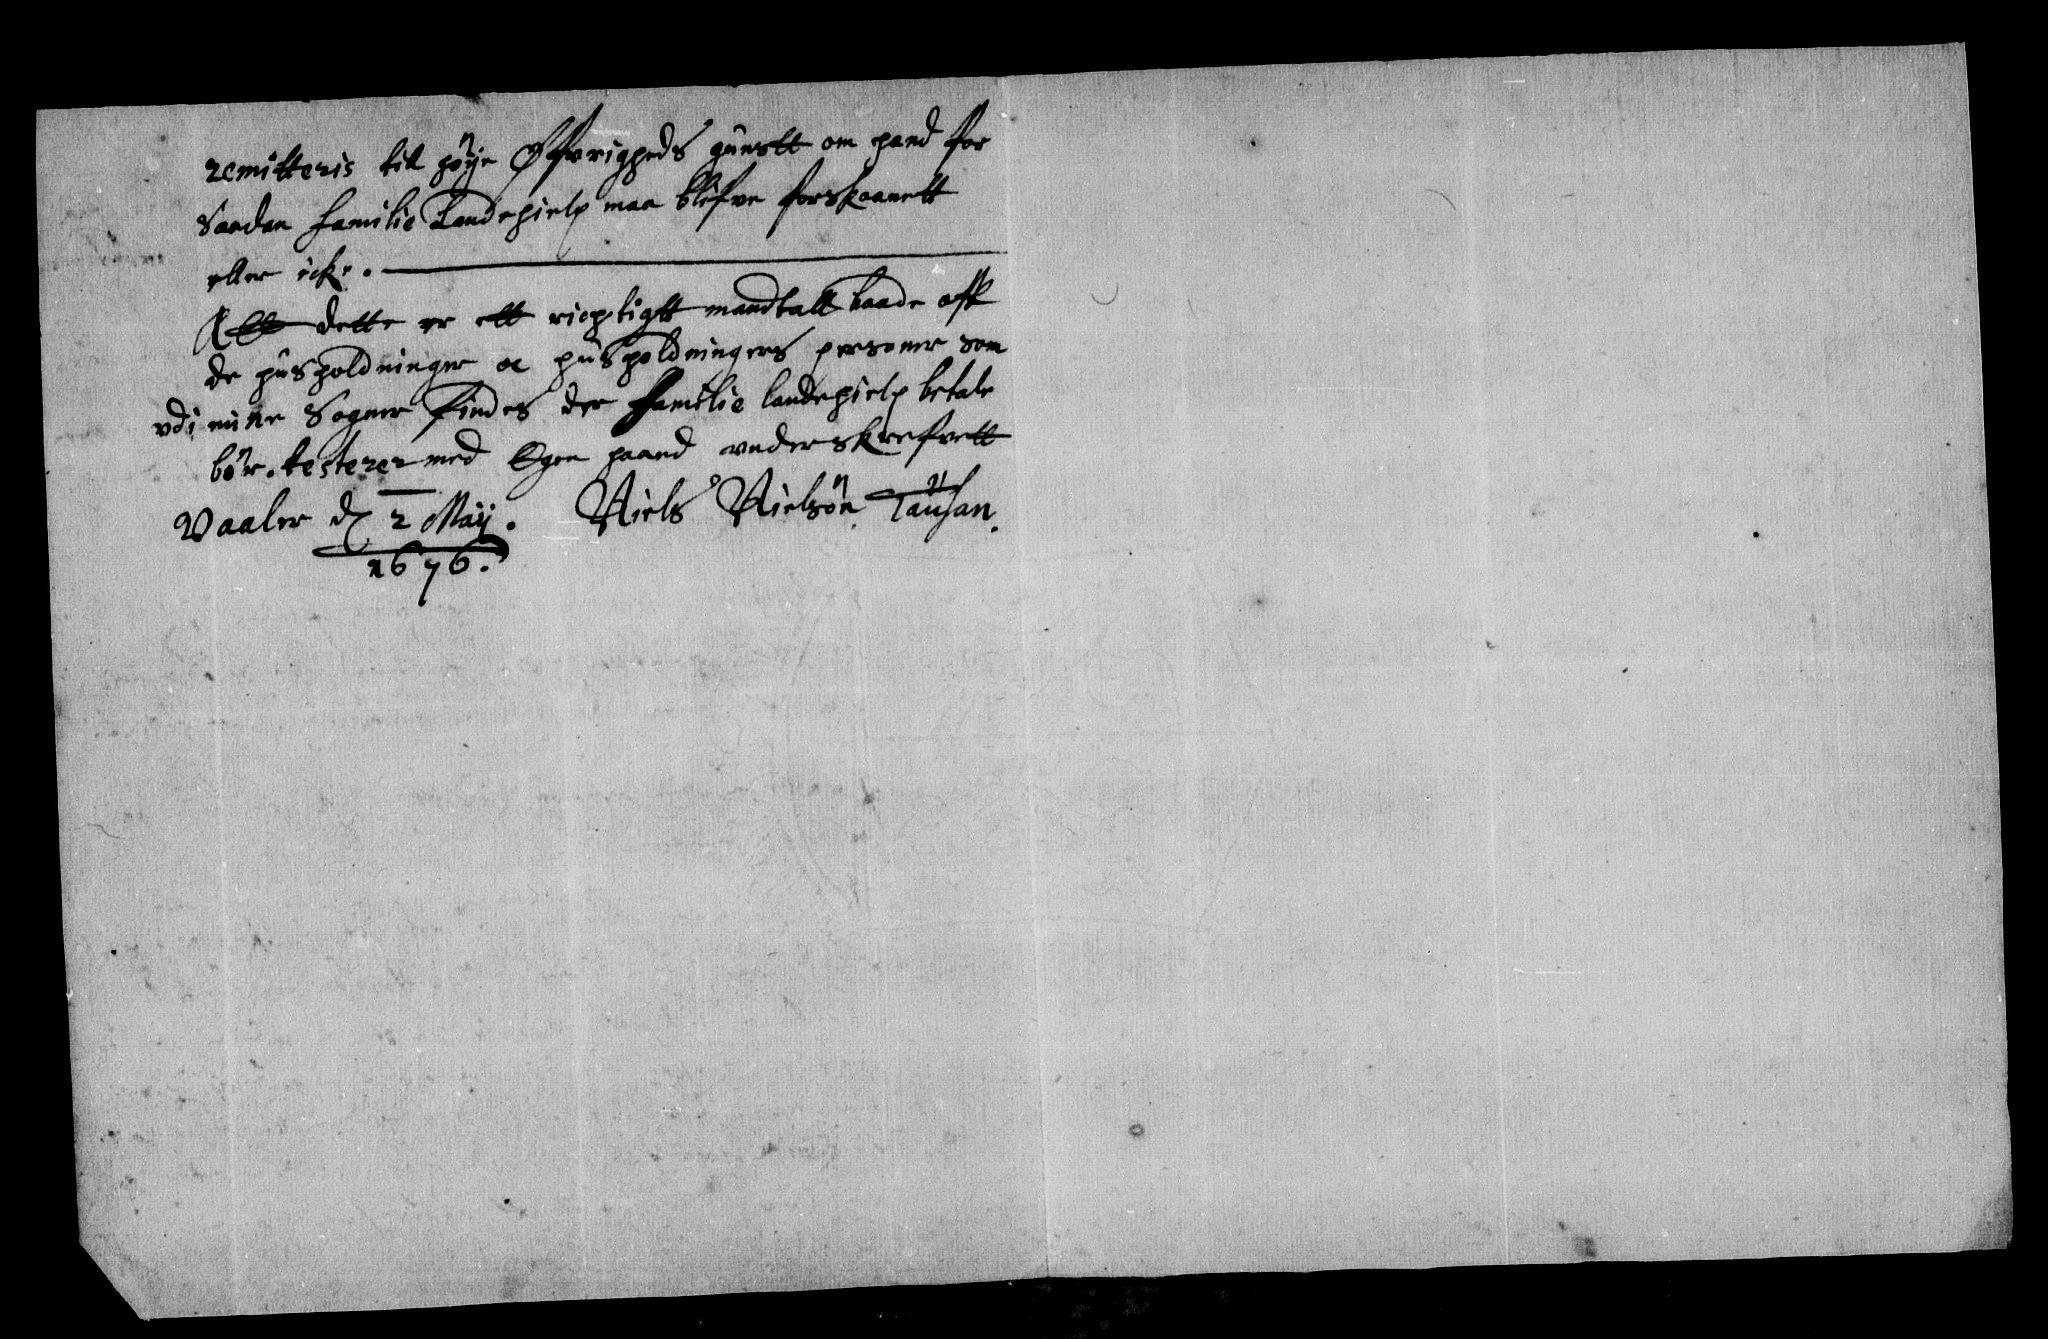 remitteris till høye Øfvrigheds gunstt om hand for
Saadan familie Landehielp maa blifve forskaanett
eller icke.
Att dette er ett richtigtt mandtall baade aff
de husholdninger oc husholdningers personer som
vdi mine Sogner findes der familie landehielp betale
bør. testerer med Egen haand vnderskrefvett
Vaaler d 2 Maij. Niels Nielsøn Tausan.
1676.